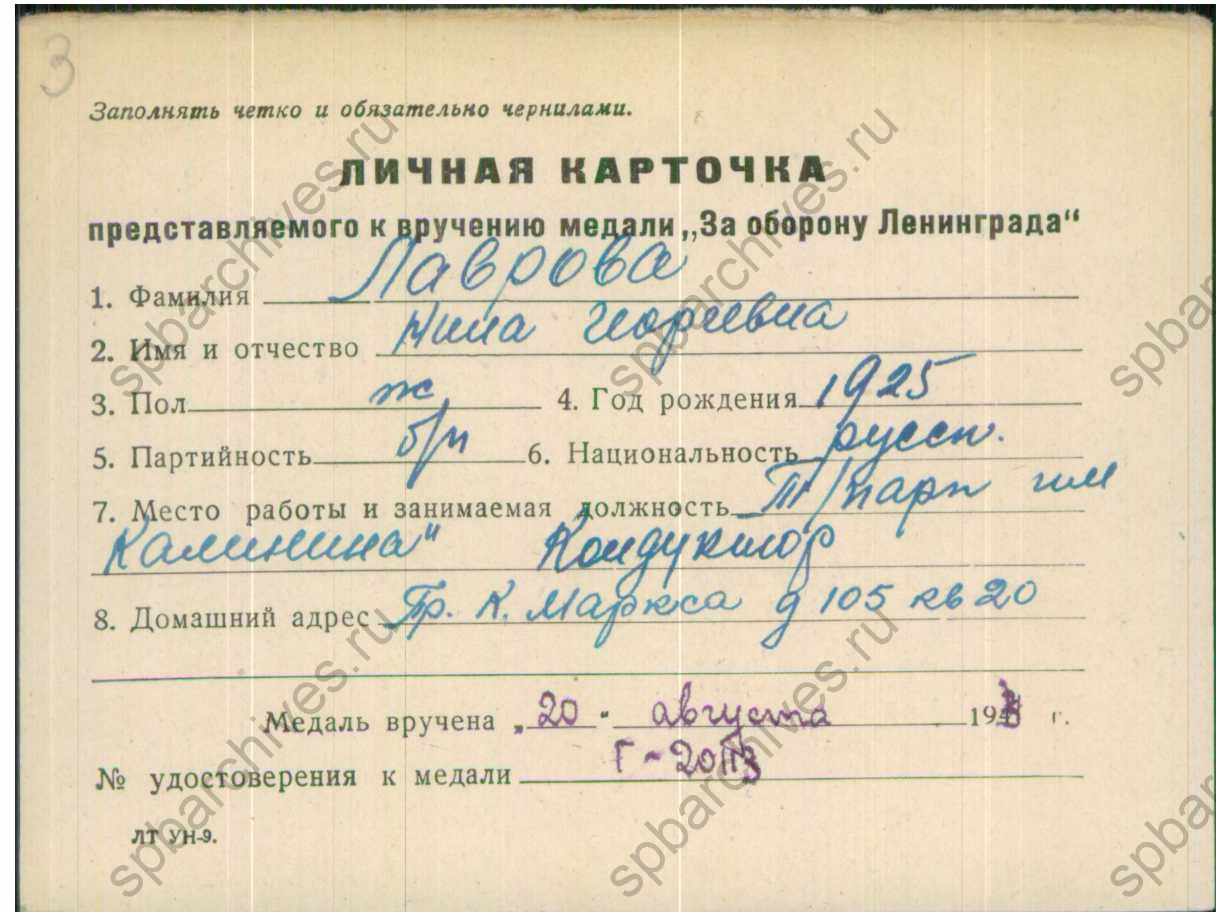 3
Заполнять четко и обязательно чернилами.
ЛИЧНАЯ КАРТОЧКА
представляемого к вручению медали „За оборону Ленинграда“
1. Фамилия Лаврова
2. Имя и отчество Нина Георгиевна
3. Пол ж 4. Год рождения 1925
5. Партийность б/п 6. Национальность русск.
7. Место работы и занимаемая должность Т/парк им
Калинина" Кондуктор
8. Домашний адрес Пр. К. Маркса д 105 кв 20
Медаль вручена „20" августа 1943 г.
№ удостоверения к медали
ЛТ УН-9.
spbarchives.ru
spbarchives.ru
spbarchives.ru
spbarchives.ru